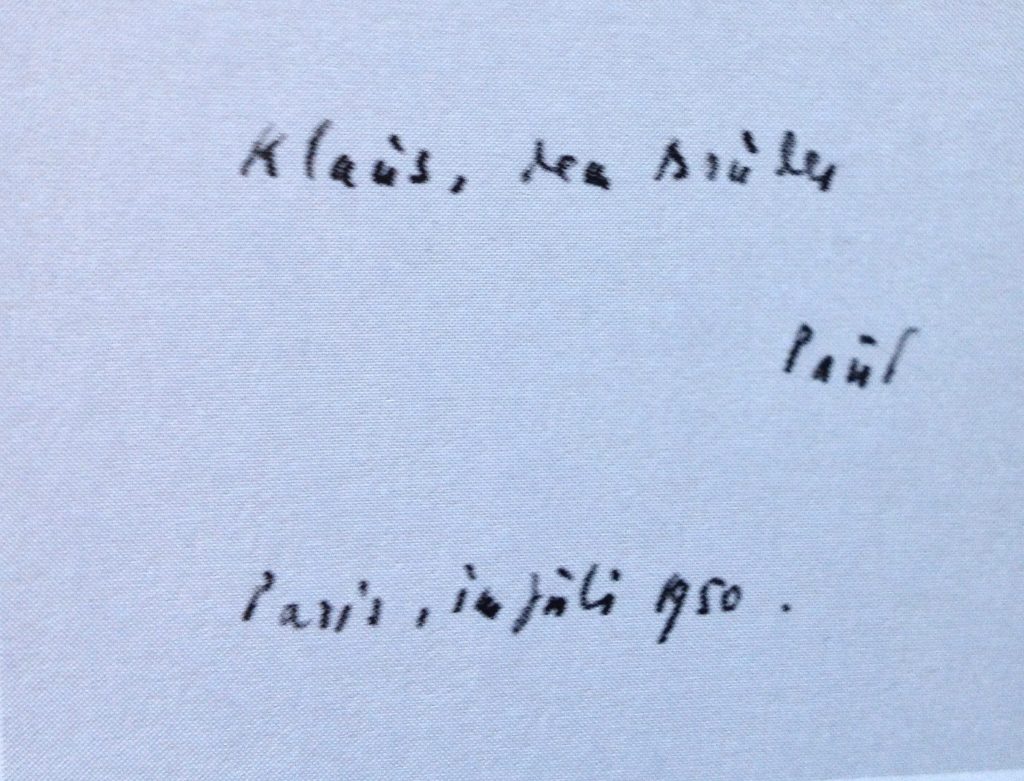 Klaus, dem Bruder
Paul
Paris, im Juli 1950.